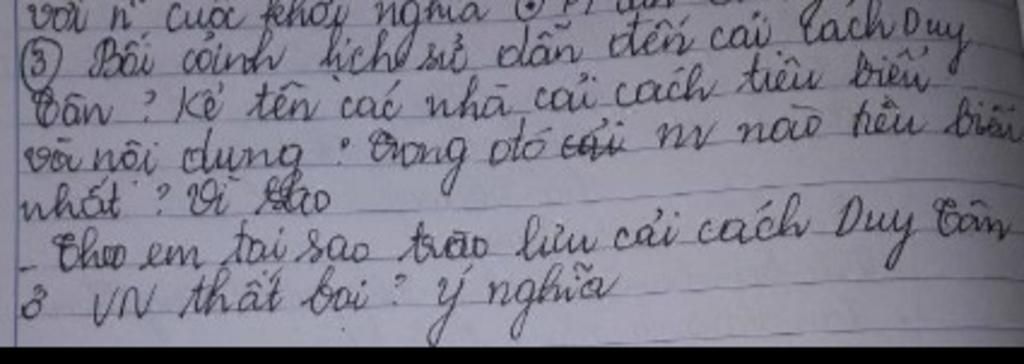 với n~ cuộc khởi nghĩa
③ Bối cảnh lịch sử dẫn đến cải cách Duy
Tân ? Kể tên các nhà cải cách tiêu biểu
và nội dung ? trong đó nv nào tiêu biểu
nhất ? Vì sao
- Theo em tại sao trào lưu cải cách Duy Tân
ở VN thất bại ? ý nghĩa